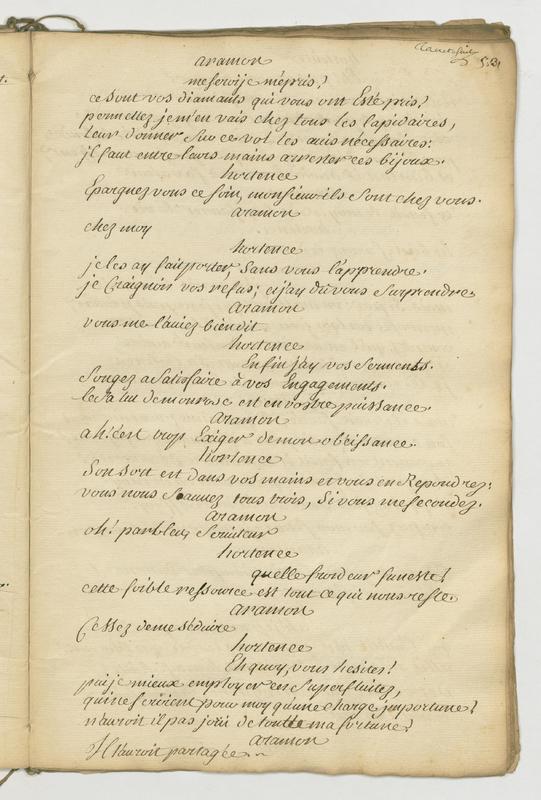 aramon
me serois-je mépris?
ce sont vos diamants qui vous ont Esté pris?
permettez je m'en vais chez tous les lapidaires,
Leur donner sur ce vol les avis nécessaires:
jl faut entre leurs mains arrester ces bijoux.
hortence
Epargnez vous ce soin, monsieur ils sont chez vous.
aramon
chez moy
hortence
je les ay fait porter, sans vous l'apprendre.
je Craignois vos refus; et j'ay dû vous surprendre
aramon
vous me l'aviez bien dit
hortence
Enfin j'ay vos serments.
Songez a satisfaire à vos Engagements.
le salut de monrose est en vostre puissance.
aramon
ah! c'est trop Exiger de mon obéissance.
hortence
Son sort est dans vos mains et vous en Repondrez;
vous nous Sauvez tous trois, Si vous me secondez.
aramon
oh! parbleu, serviteur
hortence
quelle froideur funeste!
cette foible ressource est tout ce qui nous reste.
aramon
Cessez de me séduire
hortence
Eh quoy, vous hesitez?
puis je mieux employer ces superfluitez,
qui ne seroient pour moy qu'une charge jmportune?
n'auroit il pas joüi de toutte ma fortune?
aramon
Jl l'auroit partagée